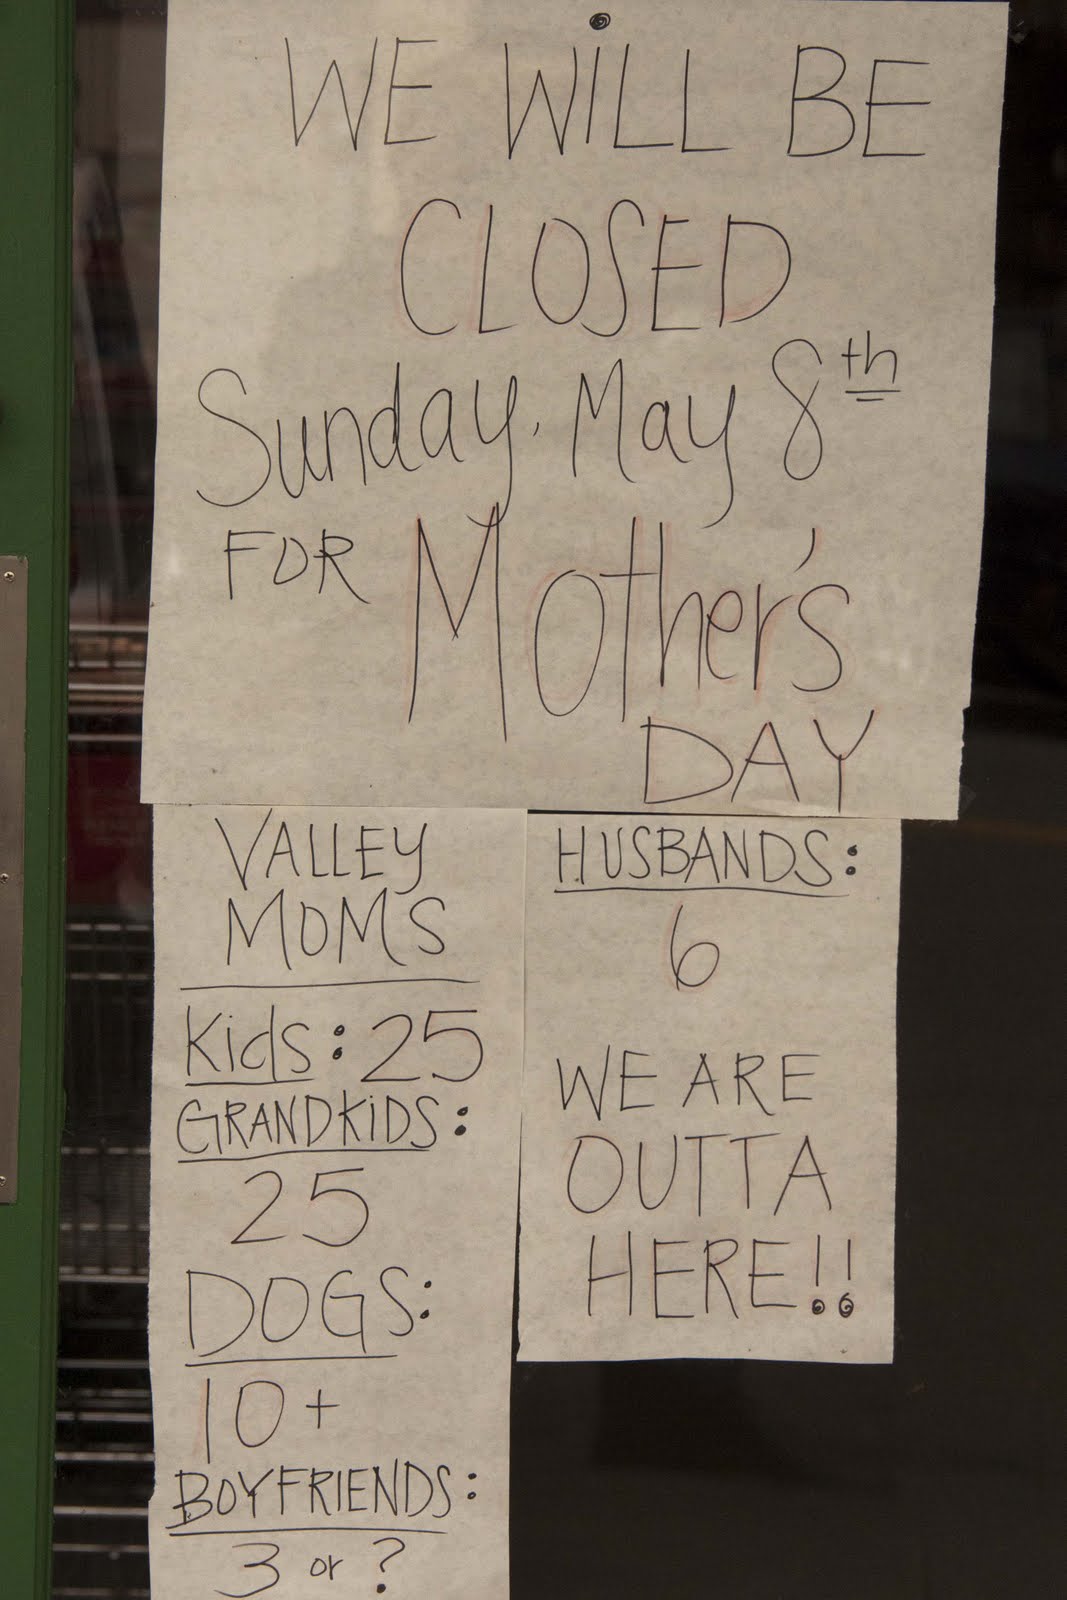 WE WiLL BE
CLOSED
Sunday, May 8th
FOR Mother's
DAY
VALLEY
MOMS
Kids: 25
GRANDKiDS:
25
DOGS:
10+
BOYFRIENDS:
3 or ?
HUSBANDS:
6
WE ARE
OUTTA
HERE!!